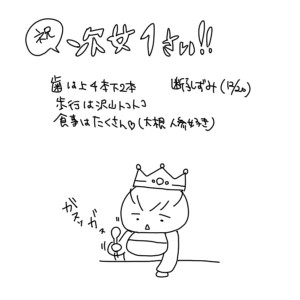 祝
次女1さい!!
歯は上4本下2本
断乳ずみ(12/20)
歩行は沢山トコトコ
食事はたくさん♡(大根人参好き)
ガズッガズ